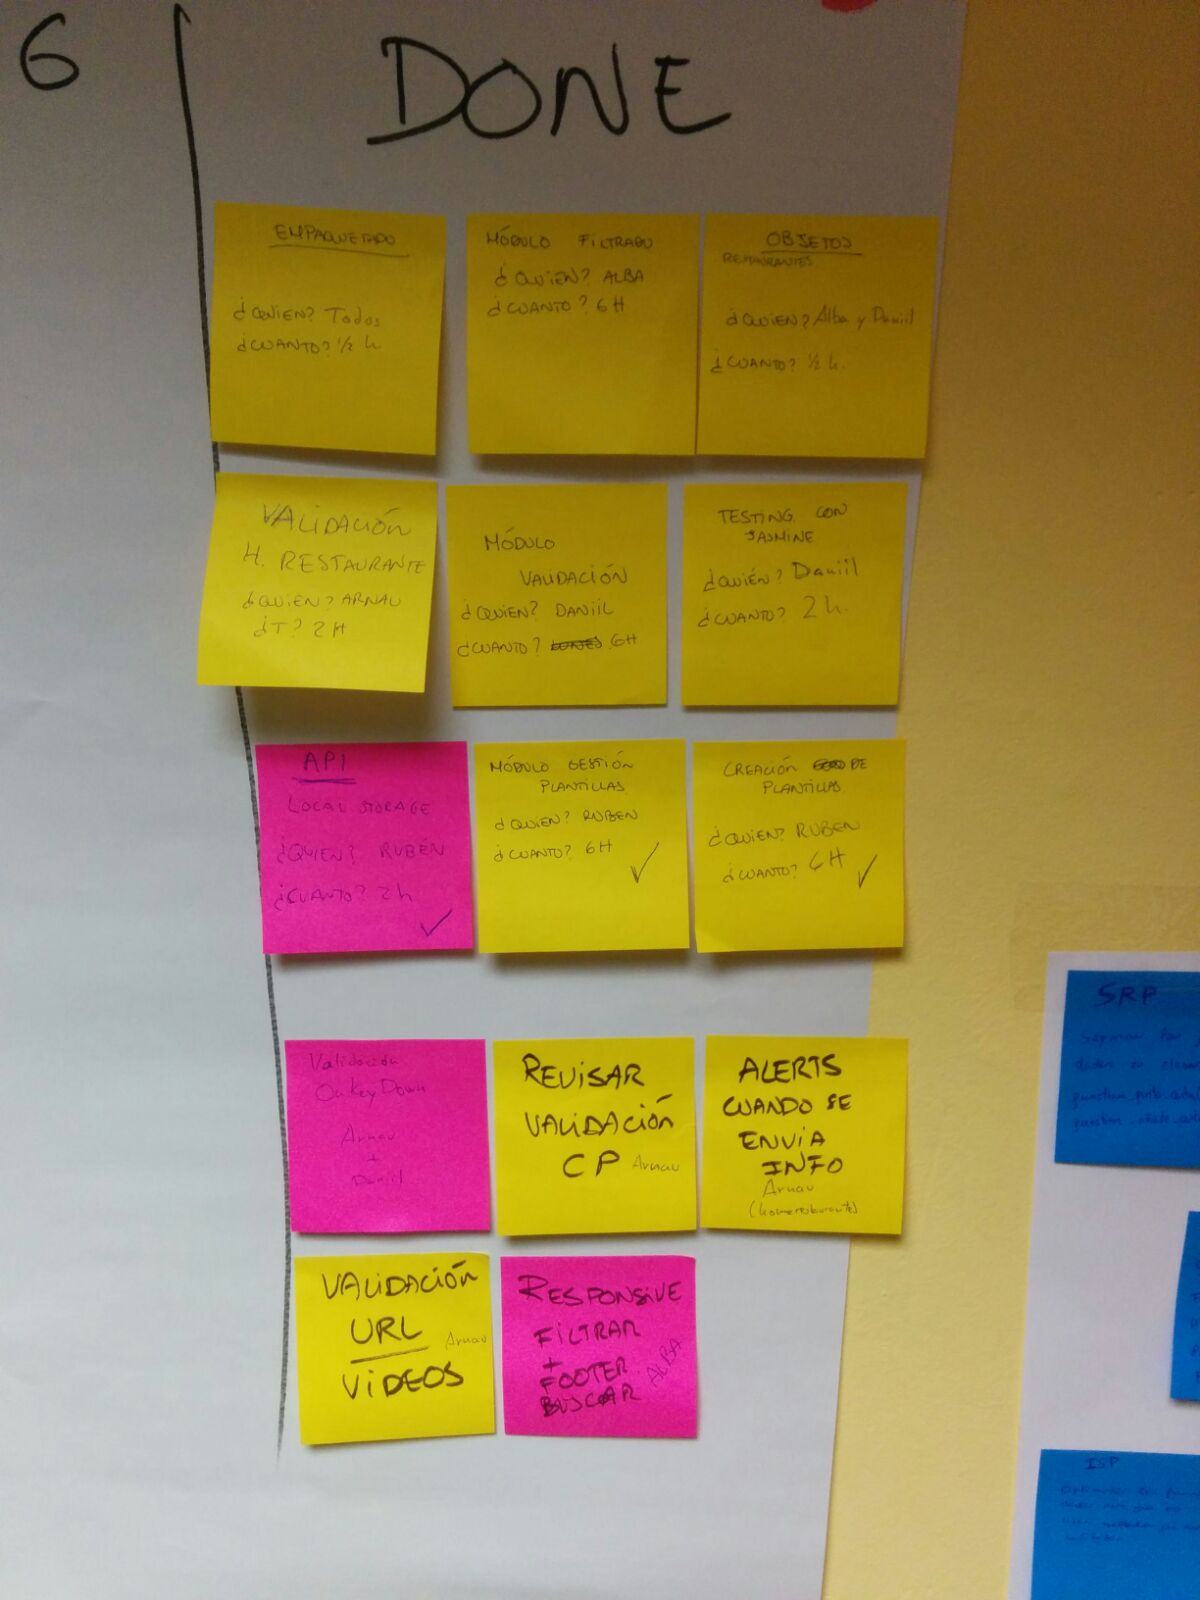 G
DONE
EMPAQUETADO
¿QUIEN? Todos
¿CUANTO? ½ h
MÓDULO FILTRADO
¿QUIEN? ALBA
¿CUANTO? 6H
OBJETOS
RESTAURANTES
¿QUIEN? Alba y Daniil
¿CUANTO? ½ h.
VALIDACIÓN
H. RESTAURANTE
¿QUIEN? ARNAU
¿T? 2H
MÓDULO
VALIDACIÓN
¿QUIEN? DANIIL
¿CUANTO? 6H
TESTING CON
JASMINE
¿QUIÉN? Daniil
¿CUANTO? 2 h.
API
LOCAL STORAGE
¿QUIEN? RUBÉN
¿CUANTO? 2h
MÓDULO GESTIÓN
PLANTILLAS
¿QUIEN? RUBEN
¿CUANTO? 6H
CREACIÓN DE
PLANTILLAS
¿QUIEN? RUBEN
¿CUANTO? 6H
Validación
OnKeyDown
Arnau
+
Daniil
REVISAR
VALIDACIÓN
CP Arnau
ALERTS
CUANDO SE
ENVIA
INFO
Arnau
VALIDACIÓN
URL Arnau
VIDEOS
RESPONSIVE
FILTRAR
+
FOOTER
BUSCAR
ALBA
SRP
ISP